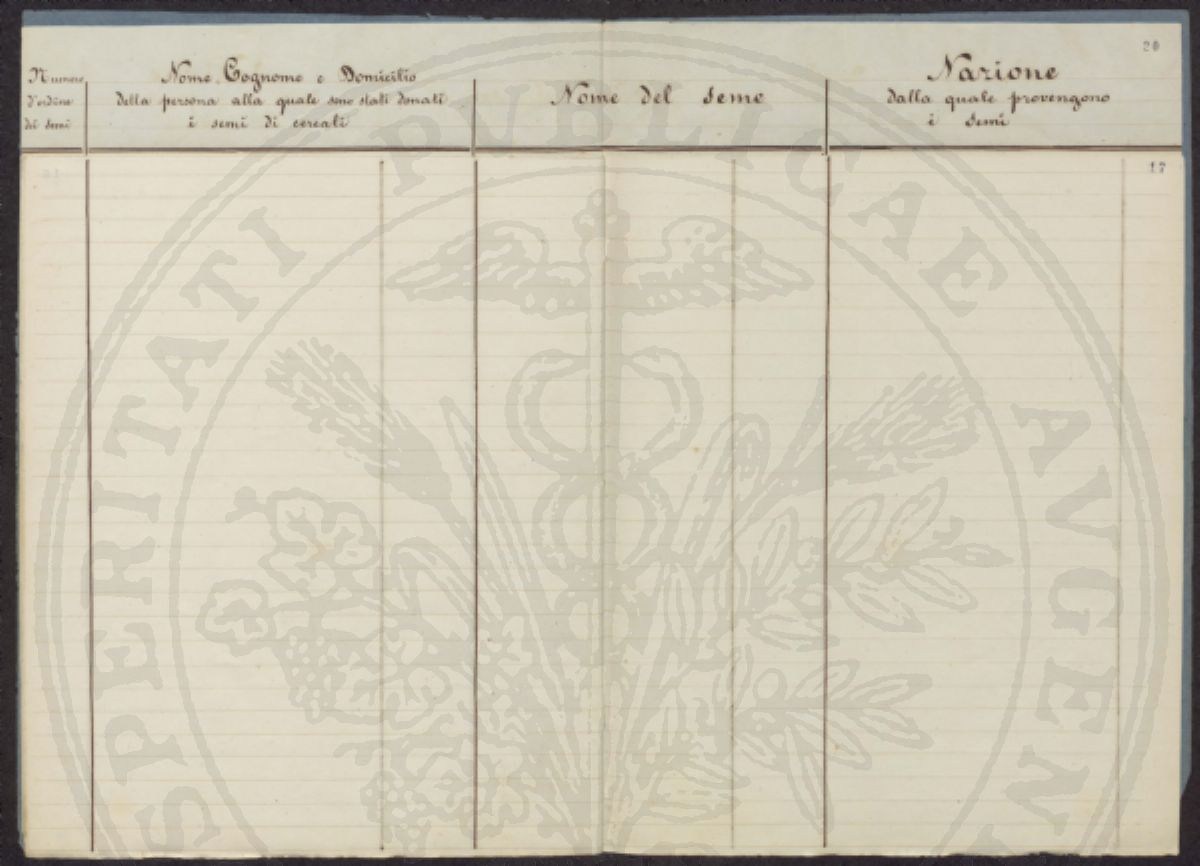 20
Numero
d'ordine
di semi
Nome, Cognome e Domicilio
della persona alla quale sono stati donati
i semi di cereali
Nome del seme
Nazione
dalla quale provengono
i semi
17
SPERITATI PVBLICAE AVGEN